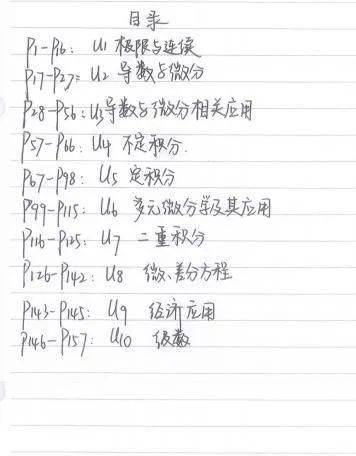 目录
P1-P16: U1 极限与连续
P17-P27: U2 导数与微分
P28-P56: U3导数与微分相关应用
P57-P66: U4 不定积分.
P67-P98: U5 定积分
P99-P115: U6 多元微分学及其应用
P116-P125: U7 二重积分
P126-P142: U8 微、差分方程
P143-P145: U9 经济应用
P146-P157: U10 级数